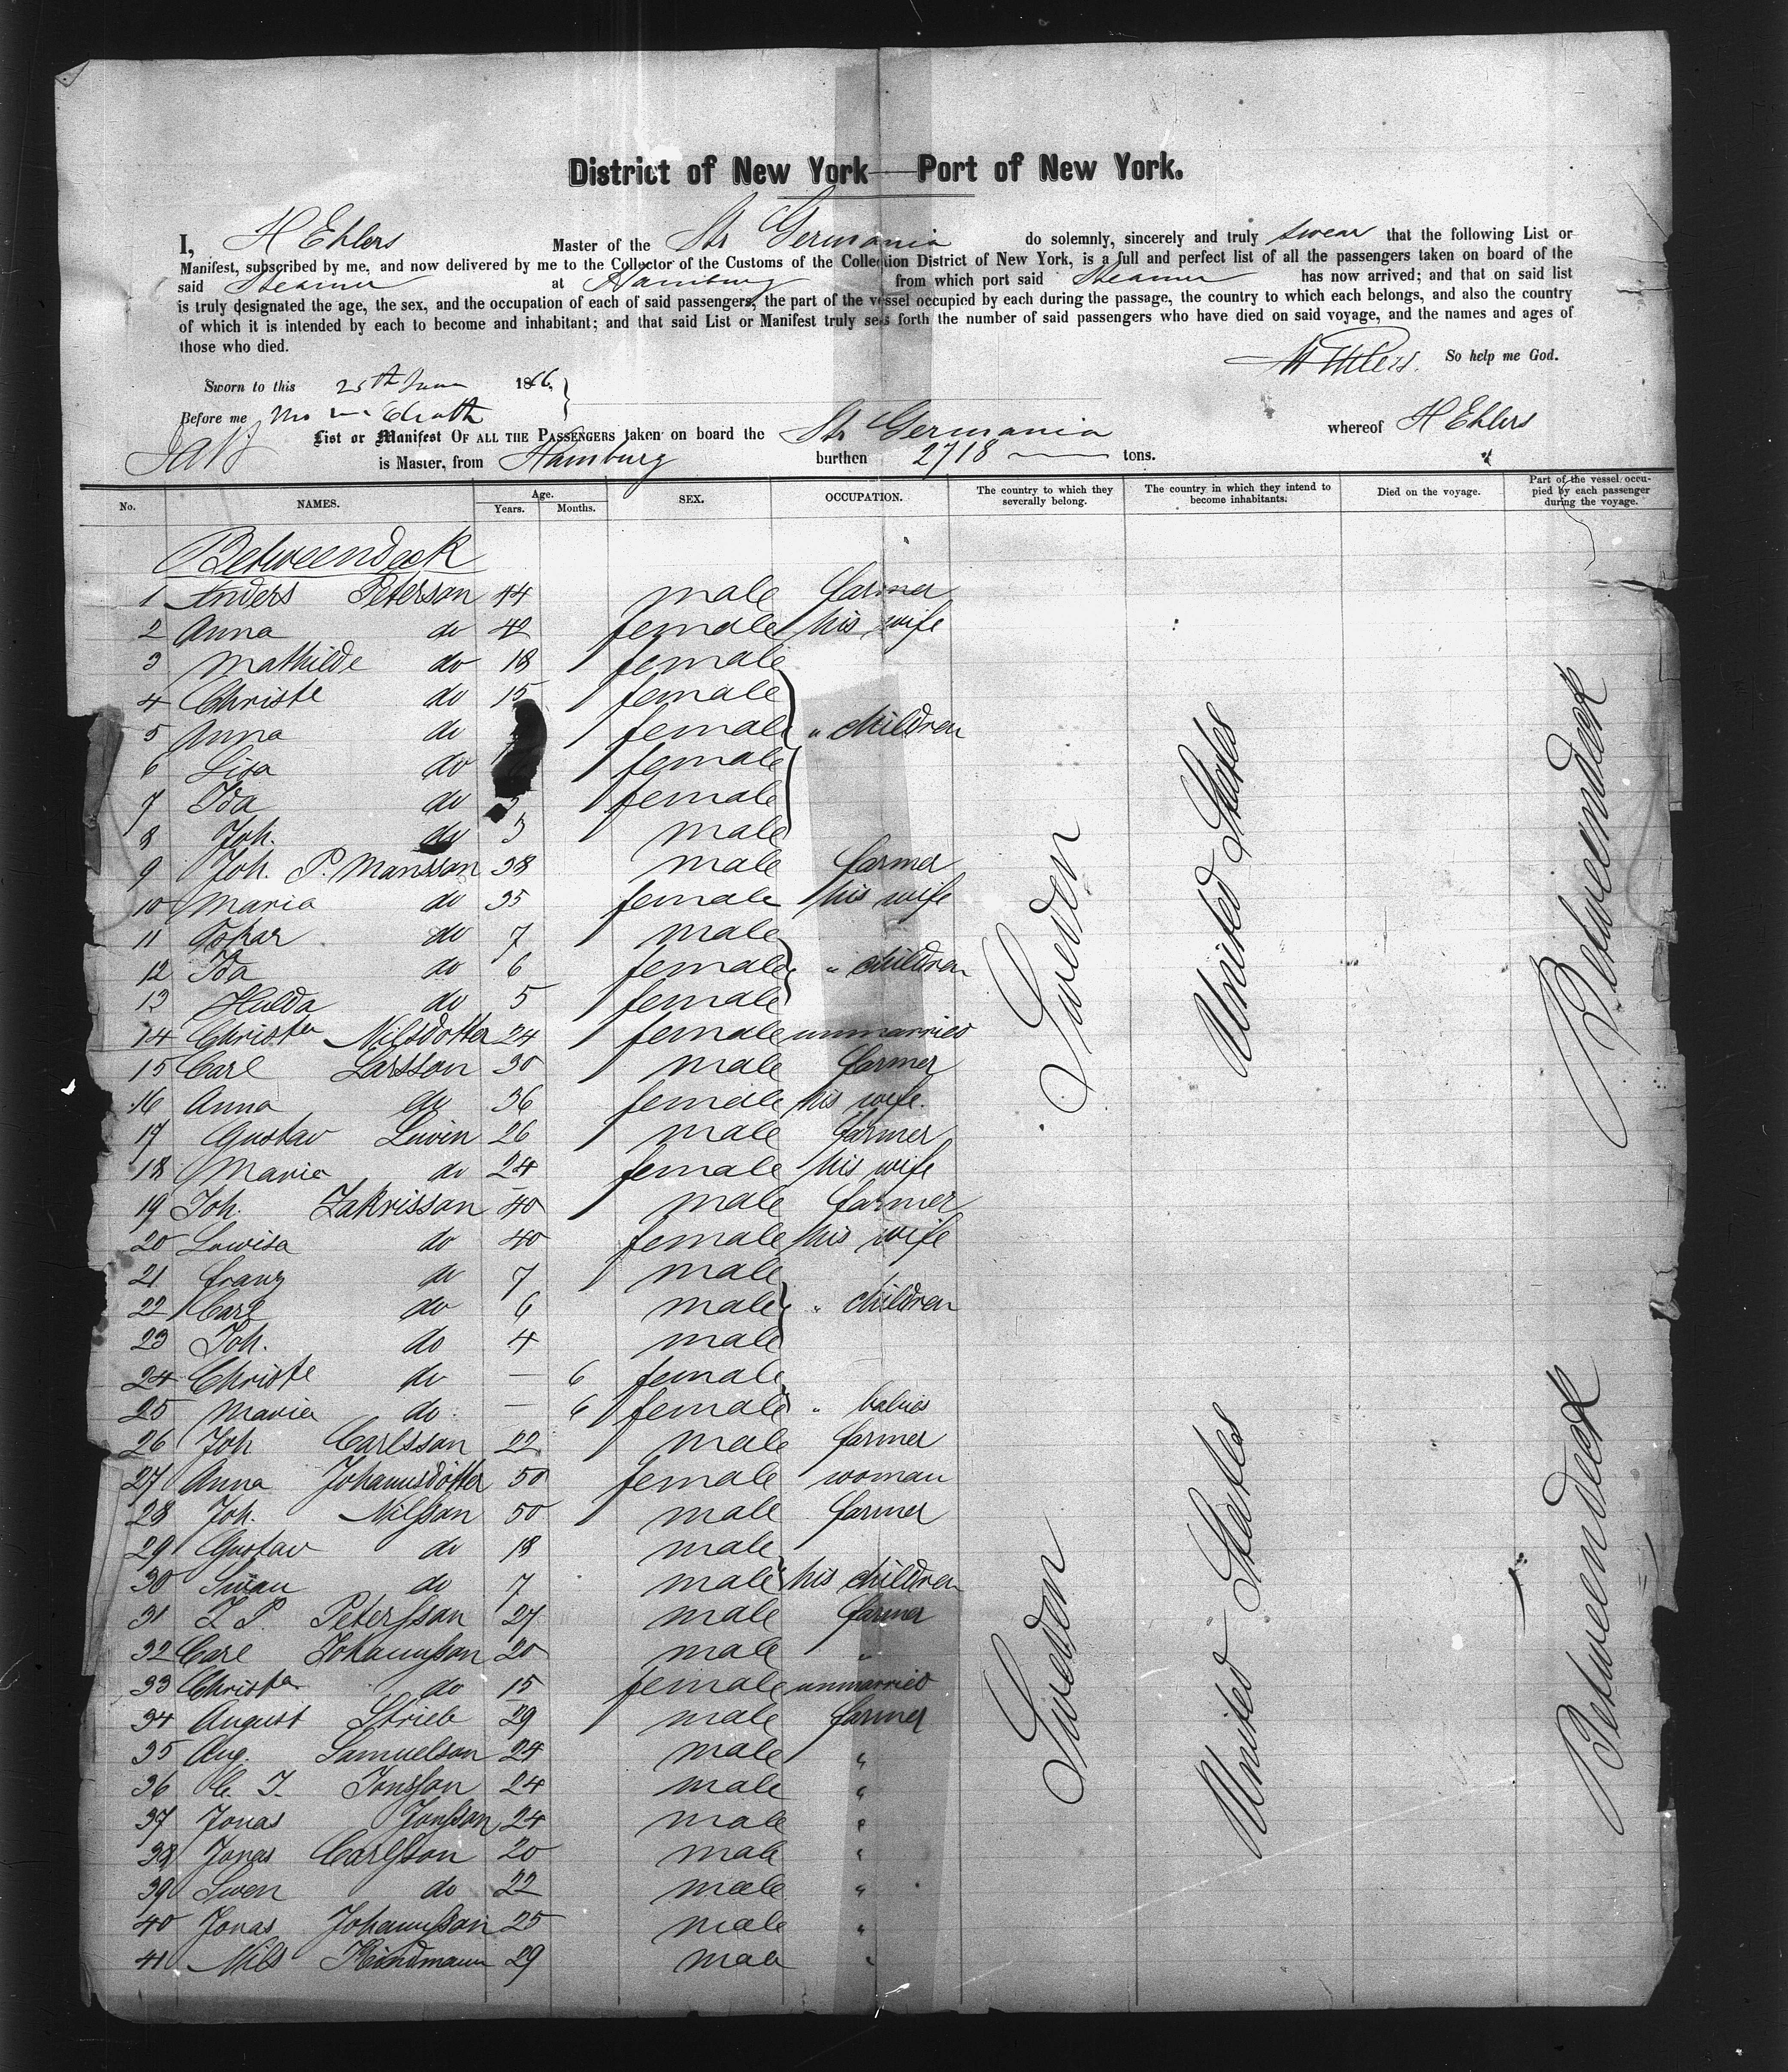 District of New York — Port of New York.
I, H Ehlers Master of the Str Germania do solemnly, sincerely and truly swear that the following List or
Manifest, subscribed by me, and now delivered by me to the Collector of the Customs of the Collection District of New York, is a full and perfect list of all the passengers taken on board of the
said Steamer at Hamburg from which port said Steamer has now arrived; and that on said list
is truly designated the age, the sex, and the occupation of each of said passengers, the part of the vessel occupied by each during the passage, the country to which each belongs, and also the country
of which it is intended by each to become and inhabitant; and that said List or Manifest truly sets forth the number of said passengers who have died on said voyage, and the names and ages of
those who died.
H Ehlers. So help me God.
Sworn to this 25th June 1866
Before me
List or Manifest OF ALL THE PASSENGERS taken on board the Str Germania whereof H Ehlers
is Master, from Hamburg burthen 2718 tons.
No. NAMES. Age. Years. Months. SEX. OCCUPATION. The country to which they severally belong. The country in which they intend to become inhabitants. Died on the voyage. Part of the vessel occupied by each passenger during the voyage.
Betweendeck
1 Anders Peterson 44 male farmer
2 Anna do 42 female his wife
3 Mathilde do 18 female
4 Christe do 15 female
5 Anna do female " children
6 Lisa do female
7 Ida do 5 female
8 Joh. do 3 male
9 Joh. P. Mansson 38 male farmer
10 Maria do 35 female his wife
11 Oskar do 7 male
12 Ida do 6 female " children
13 Hulda do 5 female
14 Christa Nilsdotter 24 female unmarried
15 Carl Larsson 30 male farmer
16 Anna do 36 female his wife.
17 Gustav Lewin 26 male farmer
18 Maria do 24 female his wife
19 Joh. Zakrisson 40 male farmer
20 Lowisa do 40 female his wife
21 Franz do 7 male
22 Carl do 6 male " children
23 Joh. do 4 male
24 Christe do — 6 female
25 Maria do — 6 female " babies
26 Joh Carlsson 22 male farmer
27 Anna Johannsdotter 50 female woman
28 Joh. Nilsson 50 male farmer
29 Gustav do 18 male
30 Swan do 7 male his children
31 J. P. Petersson 27 male farmer
32 Carl Johannsson 20 male "
33 Christa do 15 female unmarried
34 August Strieb 29 male farmer
35 Aug. Samuelson 24 male "
36 C. J. Jonsson 24 male "
37 Jonas Jonsson 24 male "
38 Jonas Carlsson 20 male "
39 Swen do 22 male "
40 Jonas Johannsson 25 male "
41 Nils Hindmann 29 male "
Sweden
United States
Betweendeck
Sweden
United States
Betweendeck